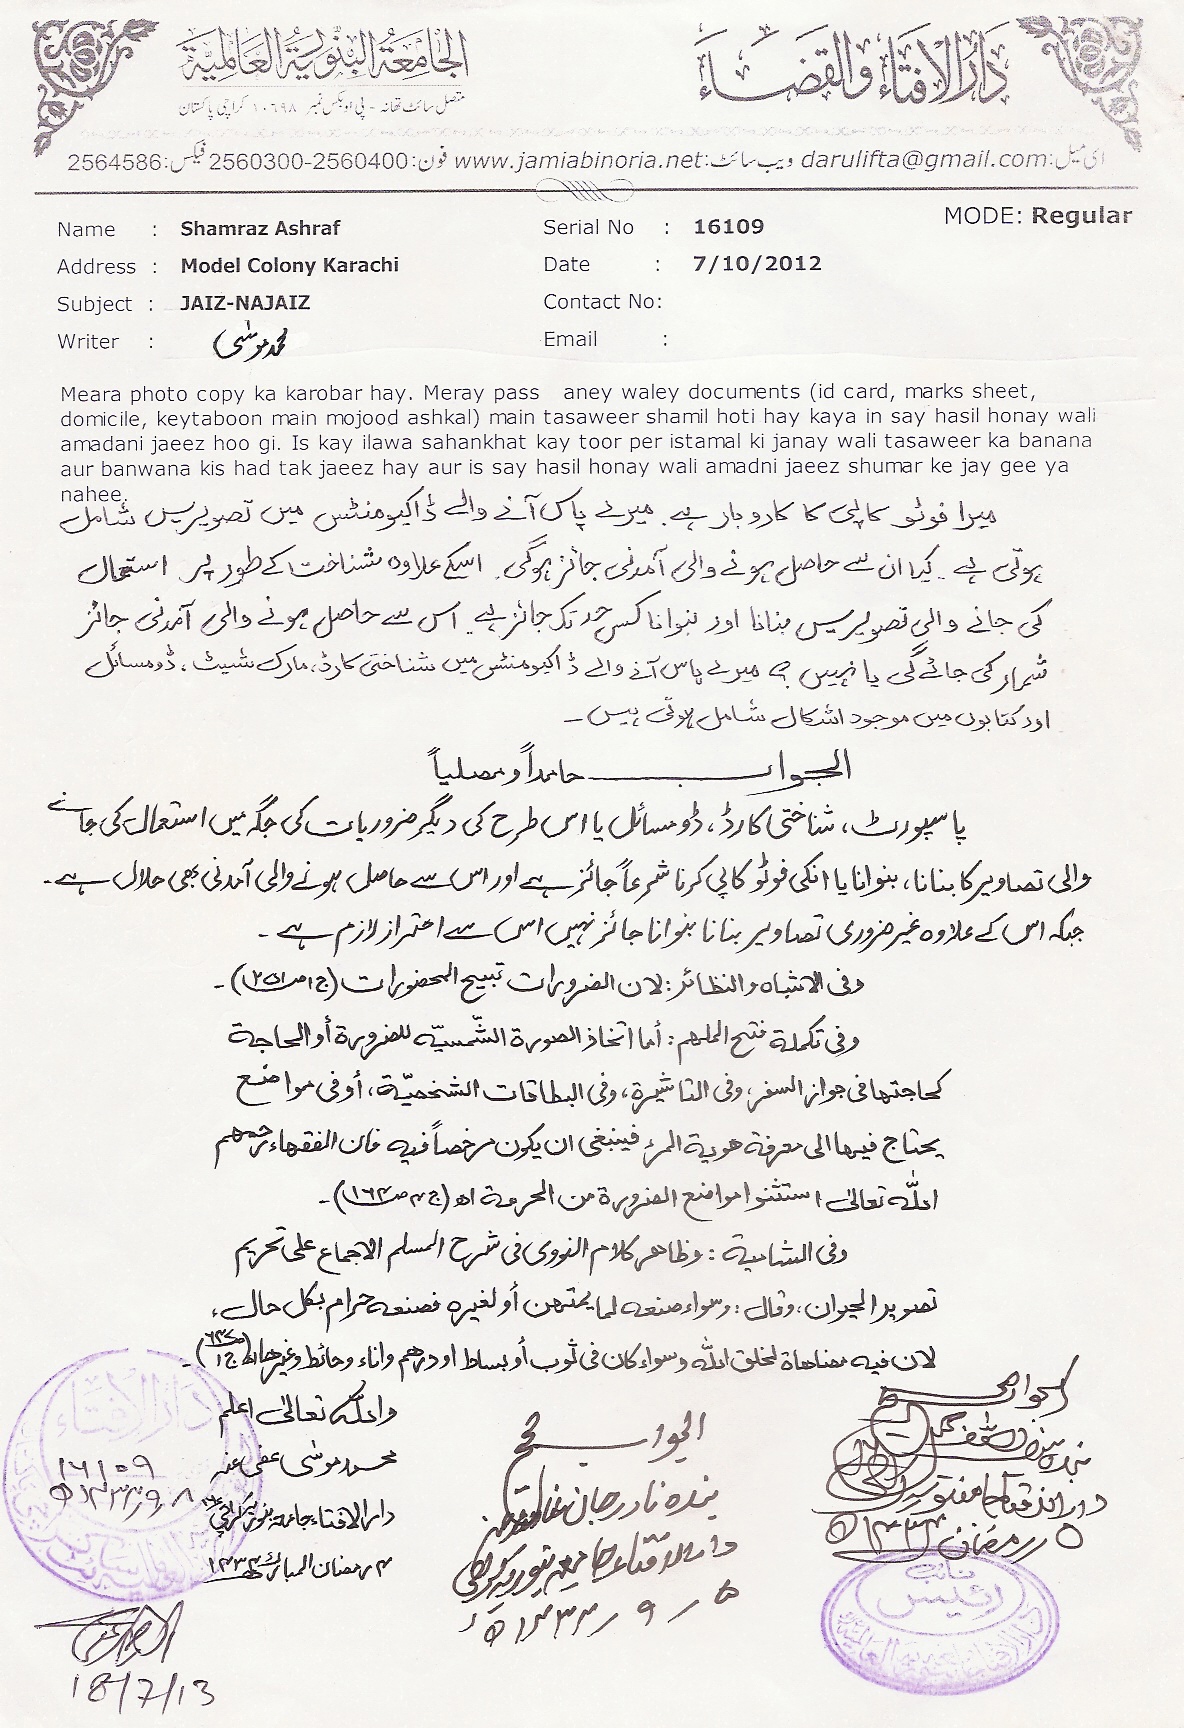 دَارُالإفتَاء وَالقَضَاء
الجَامعَة البنَوريَة العَالميَة
متصل سائٹ تھانہ - پی او بکس نمبر ۱۰۶۹۸ کراچی پاکستان
ای میل:darulifta@gmail.com ویب سائٹ:www.jamiabinoria.net فون:2560300-2560400 فیکس:2564586
MODE: Regular
Name : Shamraz Ashraf Serial No : 16109
Address : Model Colony Karachi Date : 7/10/2012
Subject : JAIZ-NAJAIZ Contact No:
Writer : محمد موسٰی Email :
Meara photo copy ka karobar hay. Meray pass aney waley documents (id card, marks sheet,
domicile, keytaboon main mojood ashkal) main tasaweer shamil hoti hay kaya in say hasil honay wali
amadani jaeez hoo gi. Is kay ilawa sahankhat kay toor per istamal ki janay wali tasaweer ka banana
aur banwana kis had tak jaeez hay aur is say hasil honay wali amadni jaeez shumar ke jay gee ya
nahee.
میرا فوٹو کاپی کا کاروبار ہے۔ میرے پاس آنے والے ڈاکیومنٹس میں تصویریں شامل
ہوتی ہے۔ کیا ان سے حاصل ہونے والی آمدنی جائز ہوگی۔ اسکے علاوہ شناخت کے طور پر استعمال
کی جانے والی تصویریں بنانا اور بنوانا کس حد تک جائز ہے۔ اس سے حاصل ہونے والی آمدنی جائز
شمار کی جائے گی یا نہیں ؟ میرے پاس آنے والے ڈاکیومنٹس میں شناختی کارڈ، مارک شیٹ، ڈومسائل
اور کتابوں میں موجود اشکال شامل ہوتی ہیں۔
الجواب حامداً ومصلیاً
پاسپورٹ، شناختی کارڈ، ڈومسائل یا اس طرح کی دیگر ضروریات کی جگہ میں استعمال کی جانے
والی تصاویر کا بنانا، بنوانا یا انکی فوٹو کاپی کرنا شرعاً جائز ہے اور اس سے حاصل ہونے والی آمدنی بھی حلال ہے۔
جبکہ اس کے علاوہ غیر ضروری تصاویر بنانا بنوانا جائز نہیں اس سے احتراز لازم ہے۔
وفی الاشباہ والنظائر: لان الضرورات تبیح المحضورات (ج۱ ص۲۵۱)۔
وفی تکملة فتح الملہم: أما اتخاذ الصورة الشّمسیّه للضرورة أو الحاجة
کحاجتھا فی جواز السفر، وفی التاشیرة، وفی البطاقات الشخصیّة، أو فی مواضع
یحتاج فیھا الی معرفة ھویة المرء فینبغی ان یکون مرخصاً فیه فان الفقھاء رحمھم
اللّٰه تعالیٰ استثنوا مواضع الضرورة من الحرمة اھ (ج۴ ص۱۶۴)۔
وفی الشامیة: وظاھر کلام النووی فی شرح المسلم الاجماع علی تحریم
تصویر الحیوان، وقال: وسواء صنعه لما یمتھن أو لغیرہ فصنعه حرام بکل حال،
لان فیه مضاھاة لخلق اللّٰه وسواء کان فی ثوب أو بساط او درھم واناء وحائط وغیرھا اھ (ج۱ ص۶۴۷)۔
واللّٰه تعالیٰ اعلم
محمد موسٰی عفی عنہ
دار الافتاء جامعہ بنوریہ کراچی
۴ رمضان المبارک ۱۴۳۳ھ
۱۶۱۰۹
۸ ر ۹ ر ۱۴۳۳ھ
18/7/13
الجواب صحیح
بندہ نادر جان
دار الافتاء جامعہ بنوریہ کراچی
۵ ر ۹ ر ۱۴۳۳ھ
الجواب صحیح
۵ ر رمضان ۱۴۳۳ھ
دار الإفتاء
نائب
رئیس